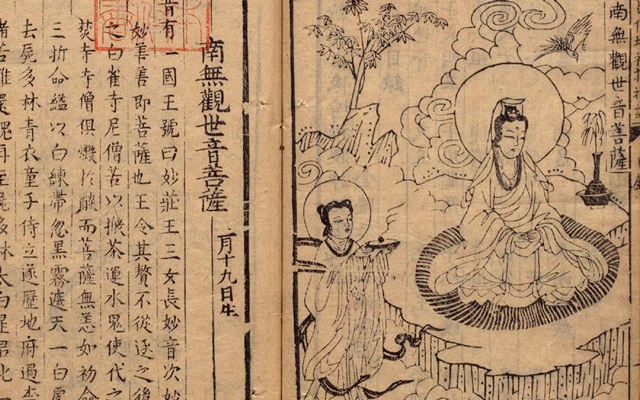 南無觀世音菩薩
南無觀世音菩薩 二月十九日生
昔有一國王號曰妙莊王三女長妙音次妙
妙善善即菩薩也王令其贅不從逐之後
之白雀寺尼僧苦以搬茶運水鬼使代之
焚寺寺僧俱燬於燄而菩薩無恙如初命
三折命縊以白練帶忽黑霧遮天一白虎
去屍多林青衣童子侍立遂歷地府過